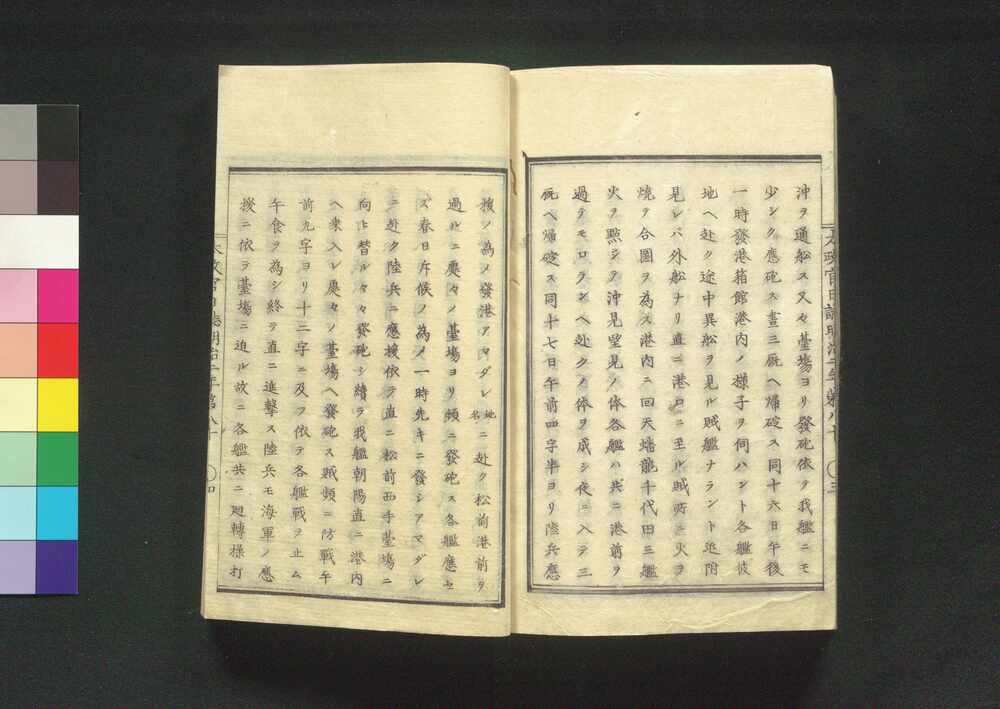 沖ヲ通船ス又々臺塲ヨリ發砲依ヲ我艦ニモ
少シク應砲ス晝三厩ヘ歸碇ス同十六日午後
一時發港箱館港内ノ様子ヲ伺ハント各艦彼
地ヘ赴ク途中異船ヲ見ル賊艦ナラント追附
見レバ外船ナリ直ニ港口ニ至ル賊所ニ火ヲ
燒ヲ合圖ヲ為ス港内ニ回天蟠龍千代田三艦
火ヲ㸃シテ沖見望見ノ体各艦ハ共ニ港前ヲ
過テモロランヘ赴クノ体ヲ成シ夜ニ入テ三
厩ヘ歸碇ス同十七日午前四字半ヨリ陸兵應
太政官日誌明治二年第八十 三
援ノ為メ發港アマダレ地名ニ赴ク松前港前ヲ
過ルニ屡々ノ臺塲ヨリ頻ニ發砲ス各艦應セ
ズ春日斥候ノ為メ一時先キニ發シアマダレ
ニ赴ク陸兵ニ應援依テ直ニ松前西手臺塲ニ
向ヒ替ル々々發砲シ續テ我艦朝陽直ニ港内
ヘ乘入レ屡々ノ臺塲ヘ發砲ス賊頻ニ防戰午
前九字ヨリ十二字ニ及フ依テ各艦戰ヲ止ム
午食ヲ為シ終テ直ニ進擊ス陸兵モ海軍ノ應
援ニ依テ臺塲ニ迫ル故ニ各艦共ニ廻轉操打
太政官日誌明治二年第八十 四